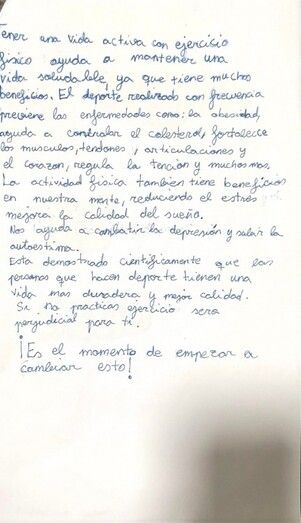 Tener una vida activa con ejercicio
físico ayuda a mantener una
vida saludable, ya que tiene muchos
beneficios. El deporte realizado con frecuencia
previene las enfermedades como: la obesidad,
ayuda a controlar el colesterol, fortalece
los musculos, tendones, articulaciones y
el corazon, regula la tencion y muchos mas.
La actividad fisica tambien tiene beneficios
en nuestra mente, reduciendo el estres
mejora la calidad del sueño.
Nos ayuda a combatir la depresión y subir la
autoestima.
Esta demostrado cientificamente que las
personas que hacen deporte tienen una
vida mas duradera y mejor calidad.
Si no practicas ejercicio sera
perjudicial para ti.
¡Es el momento de empezar a
cambiar esto!